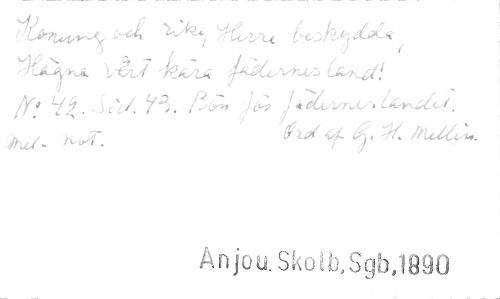 Konung och rike, Herre beskydda,
Hägna vårt kära fädernesland!
No 42. Sid. 43. Bön för fäderneslandet.
mel. not. Ord af G. H. Mellin.
Anjou. Skolb, Sgb, 1890